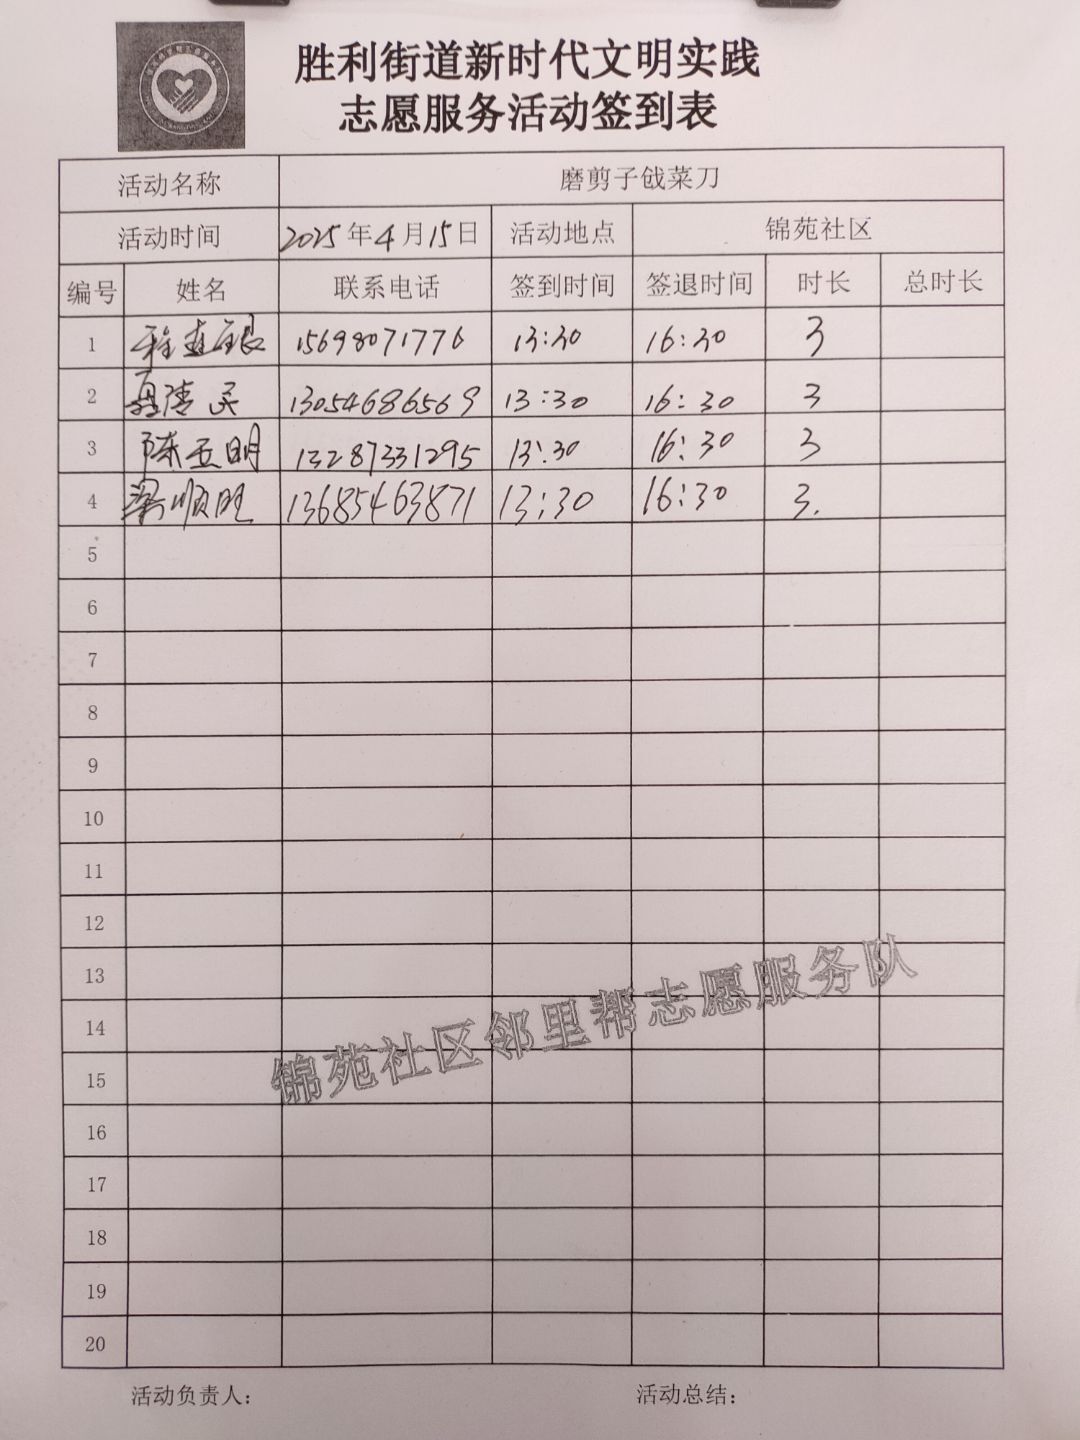 胜利街道新时代文明实践
志愿服务活动签到表
活动名称 磨剪子戗菜刀
活动时间 2025年4月15日 活动地点 锦苑社区
编号 姓名 联系电话 签到时间 签退时间 时长 总时长
1 15698071776 13:30 16:30 3
2 13054686569 13:30 16:30 3
3 陈玉明 13287331295 13:30 16:30 3
4 梁顺旺 13685463871 13:30 16:30 3.
5
6
7
8
9
10
11
12
13
14
15
16
17
18
19
20
锦苑社区邻里帮志愿服务队
活动负责人: 活动总结: